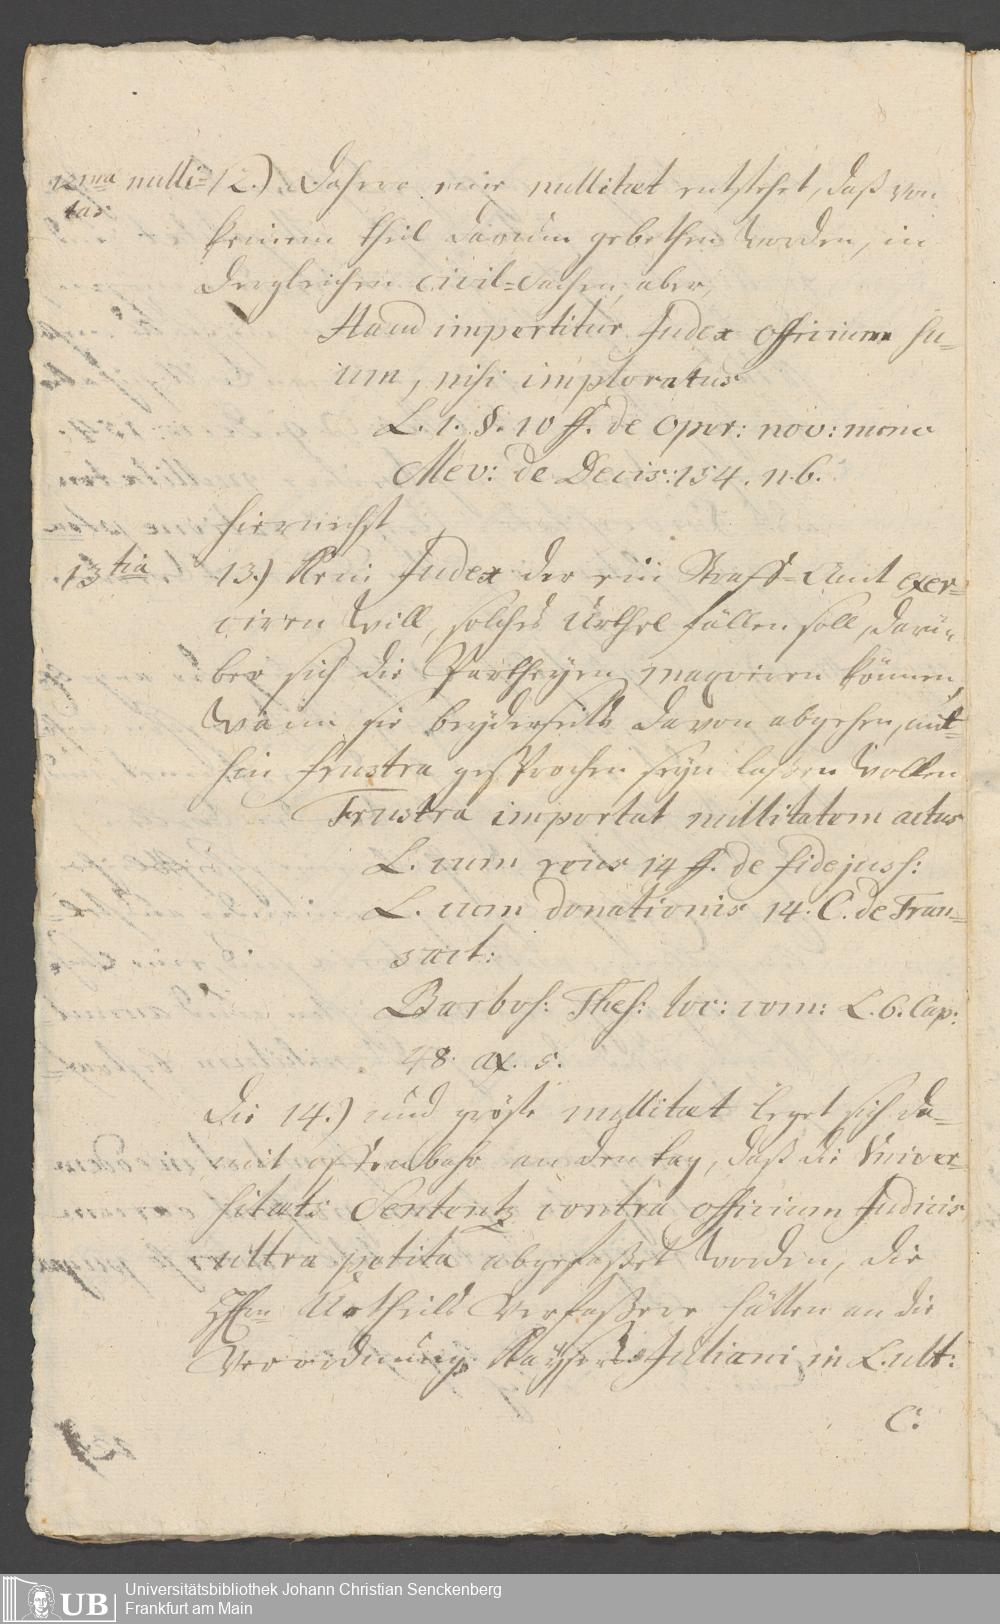 12ma nulli-
tas.
12.) Dahero eine nullitæt entstehet, daß von
keinem theil darum gebethen worden, in
dergleichen civil-Sachen, aber,
Haud impertitur Judex officium su-
um, nisi imploratus
L. 1. §. 10 ff. de oper: nov: nunc
Mev: de Decis: 154. n. 6.
hiernechst
13tia
13.) Kein Judex der ein Straff-Amt exer-
ciren will, solches Urthel fällen soll, darü-
ber sich die Partheyen moqviren können,
wann sie beyderseits davon abgehen, mit-
hin frustra gesprochen seyn laßen wollen
Frustra importat nullitatem actus
L. cum reus 14 ff. de fidejuss:
L. cum donationis 14. C. de Tran-
sact:
Barbos: Thes: loc: com: L. 6. Cap:
48. ax. 5.
Die 14.) und gröste nullitæt leget sich da-
mit offenbahr an den tag, daß die Univer-
sitæts Sententz contra officium Judicis
ultra petita abgefaßet worden, die
HErrn Urtheils Verfaßere hätten an die
Verordnung Kaysers Juliani in L. ult:
C.
Universitätsbibliothek Johann Christian Senckenberg
Frankfurt am Main
UB